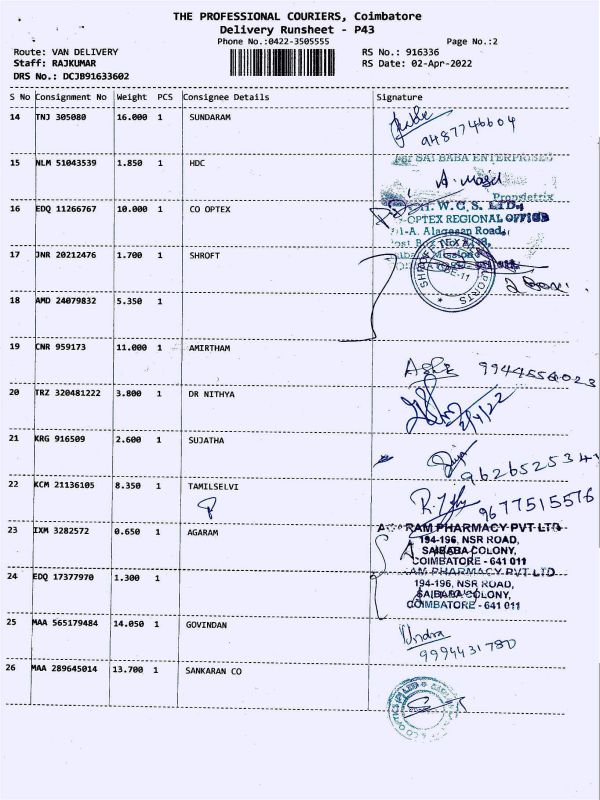 THE PROFESSIONAL COURIERS, Coimbatore
Delivery Runsheet - P43
Phone No.:0422-3505555
Page No.:2
Route: VAN DELIVERY
RS No.: 916336
Staff: RAJKUMAR
RS Date: 02-Apr-2022
DRS No.: DCJB91633602
S No Consignment No Weight PCS Consignee Details Signature
14 TNJ 305080 16.000 1 SUNDARAM
9487746604
15 NLM 51043539 1.850 1 HDC
SAI BABA ENTERPRISES
Proprietrix
16 EDQ 11266767 10.000 1 CO OPTEX
H. W. C. S. LTD.,
-OPTEX REGIONAL OFFICE
-A. Alagesan Road,
17 JNR 20212476 1.700 1 SHROFT
18 AMD 24079832 5.350 1
19 CNR 959173 11.000 1 AMIRTHAM
9944554023
20 TRZ 320481222 3.800 1 DR NITHYA
2/4/22
21 KRG 916509 2.600 1 SUJATHA
962652534
22 KCM 21136105 8.350 1 TAMILSELVI
9677515576
23 IXM 3282572 0.650 1 AGARAM
RAM PHARMACY PVT LTD
194-196, NSR ROAD,
SAIBABA COLONY,
COIMBATORE - 641 011
24 EDQ 17377970 1.300 1
RAM PHARMACY PVT LTD
194-196, NSR ROAD,
SAIBABA COLONY,
COIMBATORE - 641 011
25 MAA 565179484 14.050 1 GOVINDAN
9994431780
26 MAA 289645014 13.700 1 SANKARAN CO